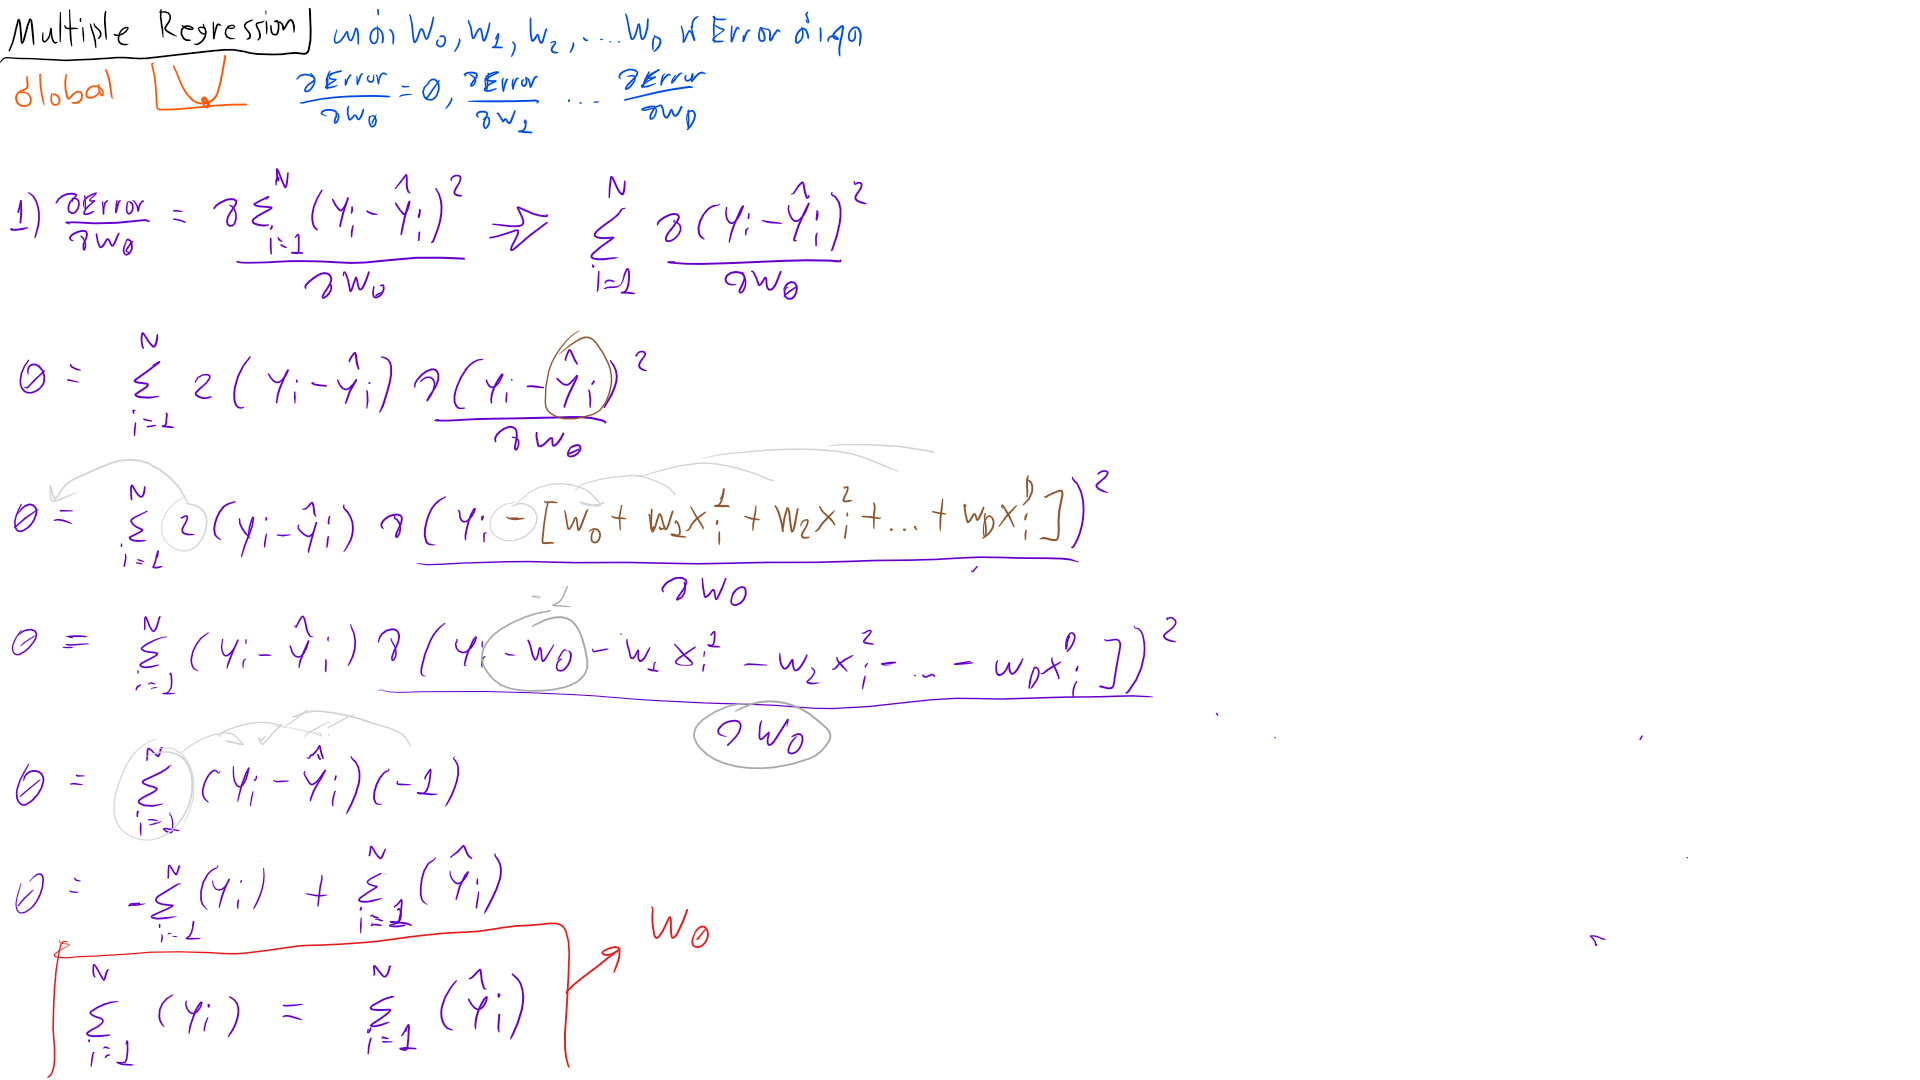 Multiple Regression หาค่า W₀, W₁, W₂, .... W_D ที่ Error ต่ำสุด
Global ∂Error/∂W₀ = 0, ∂Error/∂W₁ ... ∂Error/∂W_D
1) ∂Error/∂W₀ = ∂ Σ_{i=1}^{N} (Yᵢ - Ŷᵢ)² / ∂W₀ ⇒ Σ_{i=1}^{N} ∂(Yᵢ - Ŷᵢ)² / ∂W₀
0 = Σ_{i=1}^{N} 2(Yᵢ - Ŷᵢ) ∂(Yᵢ - Ŷᵢ)² / ∂W₀
0 = Σ_{i=1}^{N} 2(Yᵢ - Ŷᵢ) ∂(Yᵢ - [W₀ + W₁Xᵢ¹ + W₂Xᵢ² + ... + W_D Xᵢᴰ])² / ∂W₀
-1
0 = Σ_{i=1}^{N} (Yᵢ - Ŷᵢ) ∂(Yᵢ - W₀ - W₁Xᵢ¹ - W₂Xᵢ² - ... - W_D Xᵢᴰ])² / ∂W₀
0 = Σ_{i=1}^{N} (Yᵢ - Ŷᵢ)(-1)
0 = -Σ_{i=1}^{N} (Yᵢ) + Σ_{i=1}^{N} (Ŷᵢ)
W₀
Σ_{i=1}^{N} (Yᵢ) = Σ_{i=1}^{N} (Ŷᵢ)